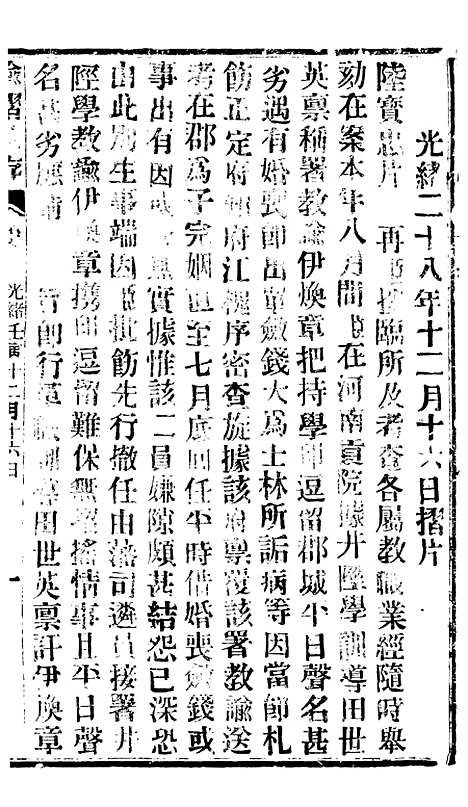 光緒二十八年十二月十六日摺片
陸寶忠片　再臨所及考查各屬教職業經隨時舉
劾在案本年八月間在河南貢院據井陘學訓導田世
英稟稱署教諭伊煥章把持學印逗留郡城平日聲名甚
劣遇有婚喪節出單斂錢大為士林所詬病等因當即札
飭正定府知府江槐序密查旋據該府稟覆該署教諭送
考在郡為子完姻直至七月底回任平時借婚喪斂錢或
事出有因實據惟該二員嫌隙頗甚結怨已深恐
由此別生事端因批飭先行撤任由藩司遴員接署井
陘學教諭伊煥章攜印逗留難保無招搖情事且平日聲
名甚劣應請行即行革職訓導田世英稟訐伊煥章
諭摺彙存
光緒壬寅十二月十六日
一